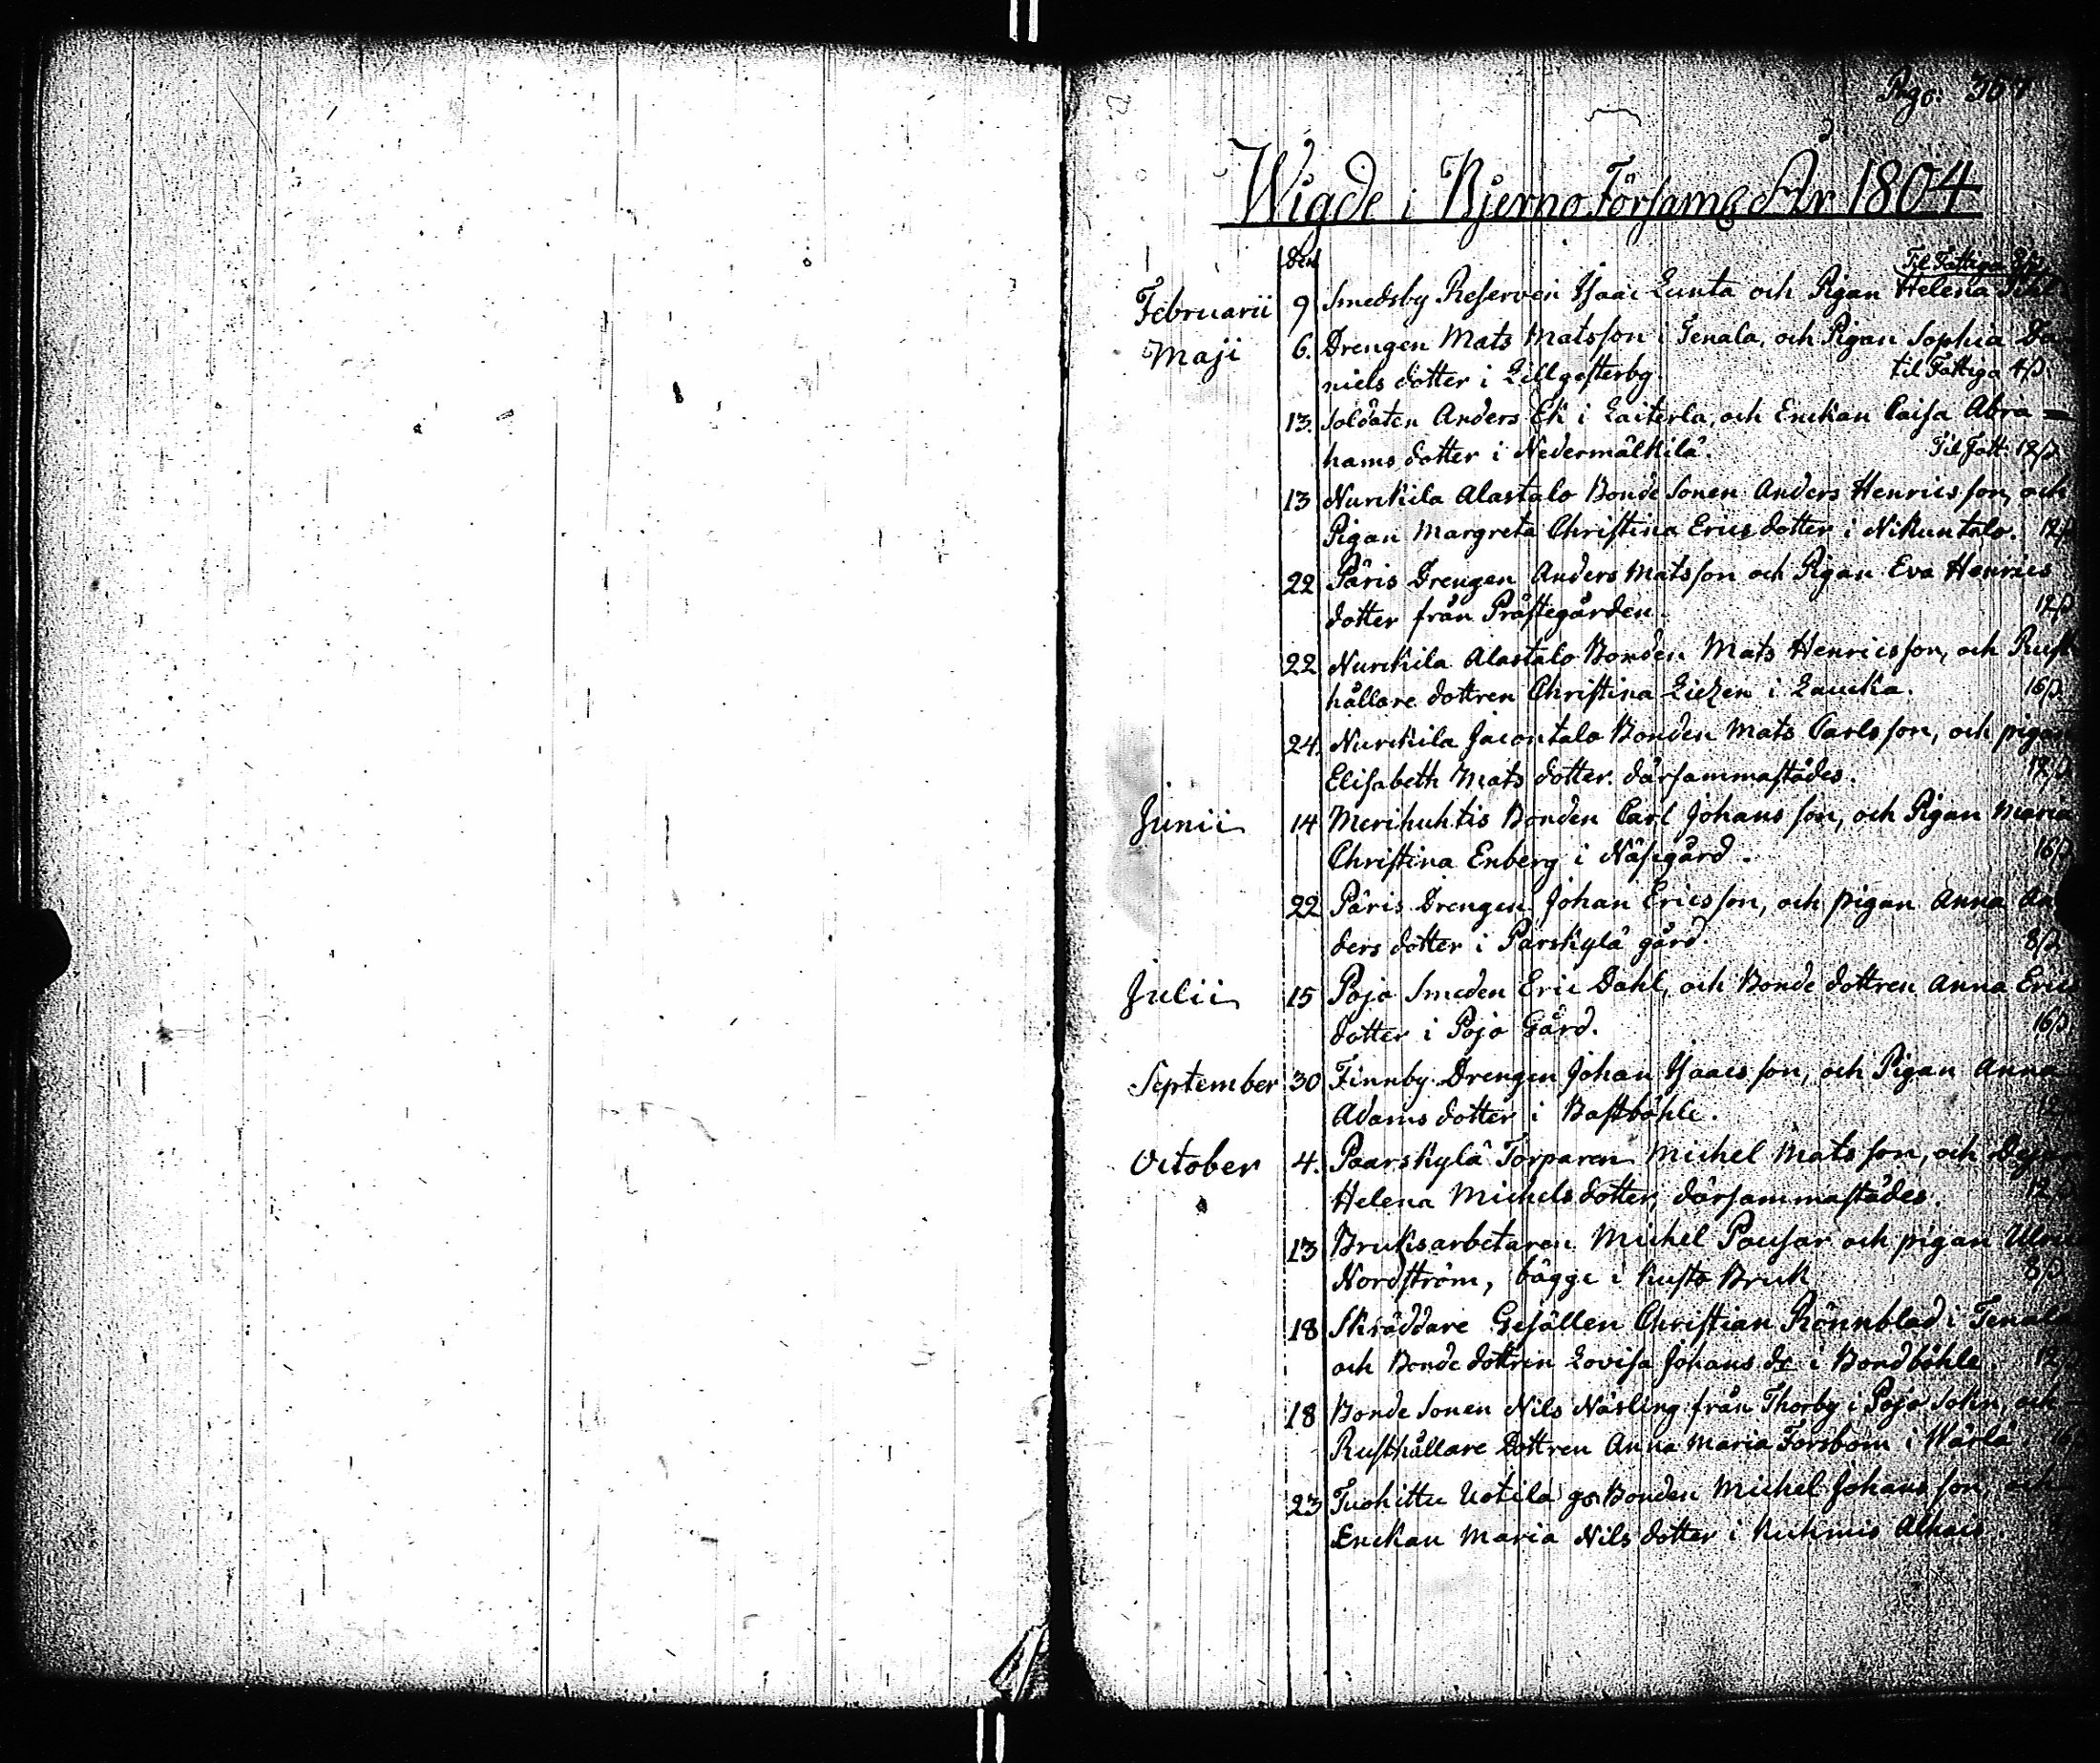 Pag: 367
Wigde i Bjerno Församl. År 1804
Den
Til Fattiga 8 ß
Februarii 9 Smedsby Reserven Isaac Lunta och Pigan Helena
Maji 6. Drengen Mats Matsson i Tenala, och Pigan Sophia Da
niels dotter i Lillgesterby. til Fattiga 4 ß
13. Soldaten Anders Ek i Laiterla, och Enckan Caisa Abra=
hams dotter i Nedermälkilä. Til Fatt. 12 ß
13 Nurckila Alastalo Bonde Sonen Anders Henricsson, och
Pigan Margreta Christina Erics dotter i Nikuntalo. 12 ß
22 Päris Drengen Anders Matsson och Pigan Eva Henrics
dotter från Prästegården. 12 ß
22 Nurckila Alastalo Bonden Mats Henricsson, och Rust
hållare dottren Christina Liezen i Laucka. 16 ß
24. Nurckila Jacontalo Bonden Mats Carlsson, och pigan
Elisabeth Mats dotter därsammastädes. 12 ß
Junii 14 Merihuhtis Bonden Carl Johansson, och Pigan Maria
Christina Enberg i Näsegård. 16 ß
22 Päris Drengen Johan Ericsson, och pigan Anna An
ders dotter i Pärskylä gård. 8 ß
Julii 15 Pojo Smeden Eric Dahl, och Bonde dottren Anna Erics
dotter i Pojo Gård. 16 ß
September 30 Finnby Drengen Johan Isaacsson, och Pigan Anna
Adams dotter i Bastböhle. 12
October 4. Paarskylä Torparen Michel Matsson, och Dejan
Helena Michels dotter, därsammastädes. 12 ß
13 Bruksarbetaren Michel Pousar och pigan Ulric
Nordström, bägge i Kusto Bruk 8 ß
18 Skräddare Gesällen Christian Rönnblad i Tenala
och Bonde dottren Lovisa Johans dr i Bondböhle. 12
18 Bonde Sonen Nils Näsling från Thorby i Pojo Sokn, och
Rusthållare Dottren Anna Maria Forsbom i Wärlä 16
23 Tuohittu Uotila gd Bonden Michel Johansson, och
Enckan Maria Nils dotter i Kuhmis Alhais.